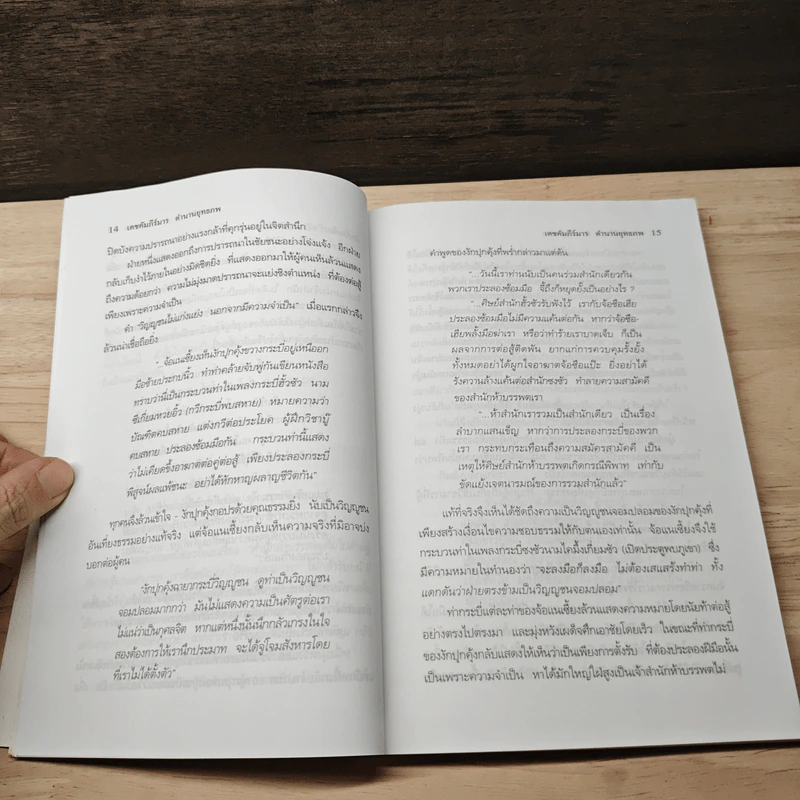 14 เดชคัมภีร์มาร ตำนานยุทธภพ
ปิดบังความปรารถนาอย่างแรงกล้าที่คุกรุ่นอยู่ในจิตสำนึก
ฝ่ายหนึ่งแสดงออกถึงการปรารถนาในชัยชนะอย่างโจ่งแจ้ง อีกฝ่าย
กลับเก็บงำไว้ภายในอย่างมิดชิดยิ่ง ที่แสดงออกมาให้ผู้คนเห็นล้วนแสดง
ถึงความด้อยกว่า ความไม่มุ่งมาดปรารถนาจะแย่งชิงตำแหน่ง ที่ต้องต่อสู้
เพียงเพราะความจำเป็น
คำ "วิญญูชนไม่แก่งแย่ง นอกจากมีความจำเป็น" เมื่อแรกกล่าวจึง
ล้วนน่าเชื่อถือยิ่ง
"...จ้อแนเซี้ยงเห็นงักปุกคุ้งขวางกระบี่อยู่เหนืออก
มือซ้ายประกบนิ้ว ทำท่าคล้ายจับพู่กันเขียนหนังสือ
ทราบว่านี่เป็นกระบวนท่าในเพลงกระบี่ฮั้วซัว นาม
ซีเกี่ยมหวยอิ้ว (กวีกระบี่พบสหาย) หมายความว่า
บัณฑิตคบสหาย แต่งกวีต่อประโยค ผู้ฝึกวิชาบู๊
คบสหาย ประลองซ้อมมือกัน กระบวนท่านี้แสดง
ว่าไม่เคียดขึ้งอาฆาตต่อคู่ต่อสู้ เพียงประลองกระบี่
พิสูจน์ผลแพ้ชนะ อย่าได้หักหาญผลาญชีวิตกัน"
ทุกคนจึงล้วนเข้าใจ - งักปุกคุ้งกอปรด้วยคุณธรรมยิ่ง นับเป็นวิญญูชน
อันเที่ยงธรรมอย่างแท้จริง แต่จ้อแนเซี้ยงกลับเห็นความจริงที่มิอาจบ่ง
บอกต่อผู้คน
"งักปุกคุ้งฉายากระบี่วิญญูชน ดูท่าเป็นวิญญูชน
จอมปลอมมากกว่า มันไม่แสดงความเป็นศัตรูต่อเรา
ไม่แน่ว่าเป็นกุศลจิต หากแต่หนึ่งนั้นนึกกลัวเกรงในใจ
สองต้องการให้เรานึกประมาท จะได้จู่โจมสังหารโดย
ที่เราไม่ได้ตั้งตัว"
เดชคัมภีร์มาร ตำนานยุทธภพ 15
คำพูดของงักปุกคุ้งที่พร่ำกล่าวมาแต่ต้น
"...วันนี้เราท่านนับเป็นคนร่วมสำนักเดียวกัน
พวกเราประลองซ้อมมือ จี้ถึงก็หยุดยั้งเป็นอย่างไร ?
"...ศิษย์สำนักฮั้วซัวรับฟังไว้ เรากับจ้อซือเฮีย
ประลองซ้อมมือไม่มีความแค้นต่อกัน หากว่าจ้อซือ-
เฮียพลั้งมือฆ่าเรา หรือว่าทำร้ายเราบาดเจ็บ ก็เป็น
ผลจากการต่อสู้ติดพัน ยากแก่การควบคุมรั้งยั้ง
ทั้งหมดอย่าได้ผูกใจอาฆาตจ้อซือแป๊ะ ยิ่งอย่าได้
รังควานล้างแค้นต่อสำนักซงซัว ทำลายความสามัคคี
ของสำนักห้าบรรพตเรา
"...ห้าสำนักเรารวมเป็นสำนักเดียว เป็นเรื่อง
ลำบากแสนเข็ญ หากว่าการประลองกระบี่ของพวก
เรา กระทบกระเทือนถึงความสมัครสามัคคี เป็น
เหตุให้ศิษย์สำนักห้าบรรพตเกิดกรณีพิพาท เท่ากับ
ขัดแย้งเจตนารมณ์ของการรวมสำนักแล้ว"
แท้ที่จริงจึงเห็นได้ชัดถึงความเป็นวิญญูชนจอมปลอมของงักปุกคุ้งที่
เพียงสร้างเงื่อนไขความชอบธรรมให้กับตนเองเท่านั้น จ้อแนเซี้ยงจึงใช้
กระบวนท่าในเพลงกระบี่ซงซัวนามไคมึ้งเกี่ยมซัว (เปิดประตูพบภูเขา) ซึ่ง
มีความหมายในทำนองว่า "จะลงมือก็ลงมือ ไม่ต้องเสแสร้งทำท่า ทั้ง
แดกดันว่าฝ่ายตรงข้ามเป็นวิญญูชนจอมปลอม"
ท่ากระบี่แต่ละท่าของจ้อแนเซี้ยงล้วนแสดงความหมายโดยนัยท้าต่อสู้
อย่างตรงไปตรงมา และมุ่งหวังเผด็จศึกเอาชัยโดยเร็ว ในขณะที่ท่ากระบี่
ของงักปุกคุ้งกลับแสดงให้เห็นว่าเป็นเพียงการตั้งรับ ที่ต้องประลองฝีมือนั้น
เป็นเพราะความจำเป็น หาได้มักใหญ่ใฝ่สูงเป็นเจ้าสำนักห้าบรรพตไม่